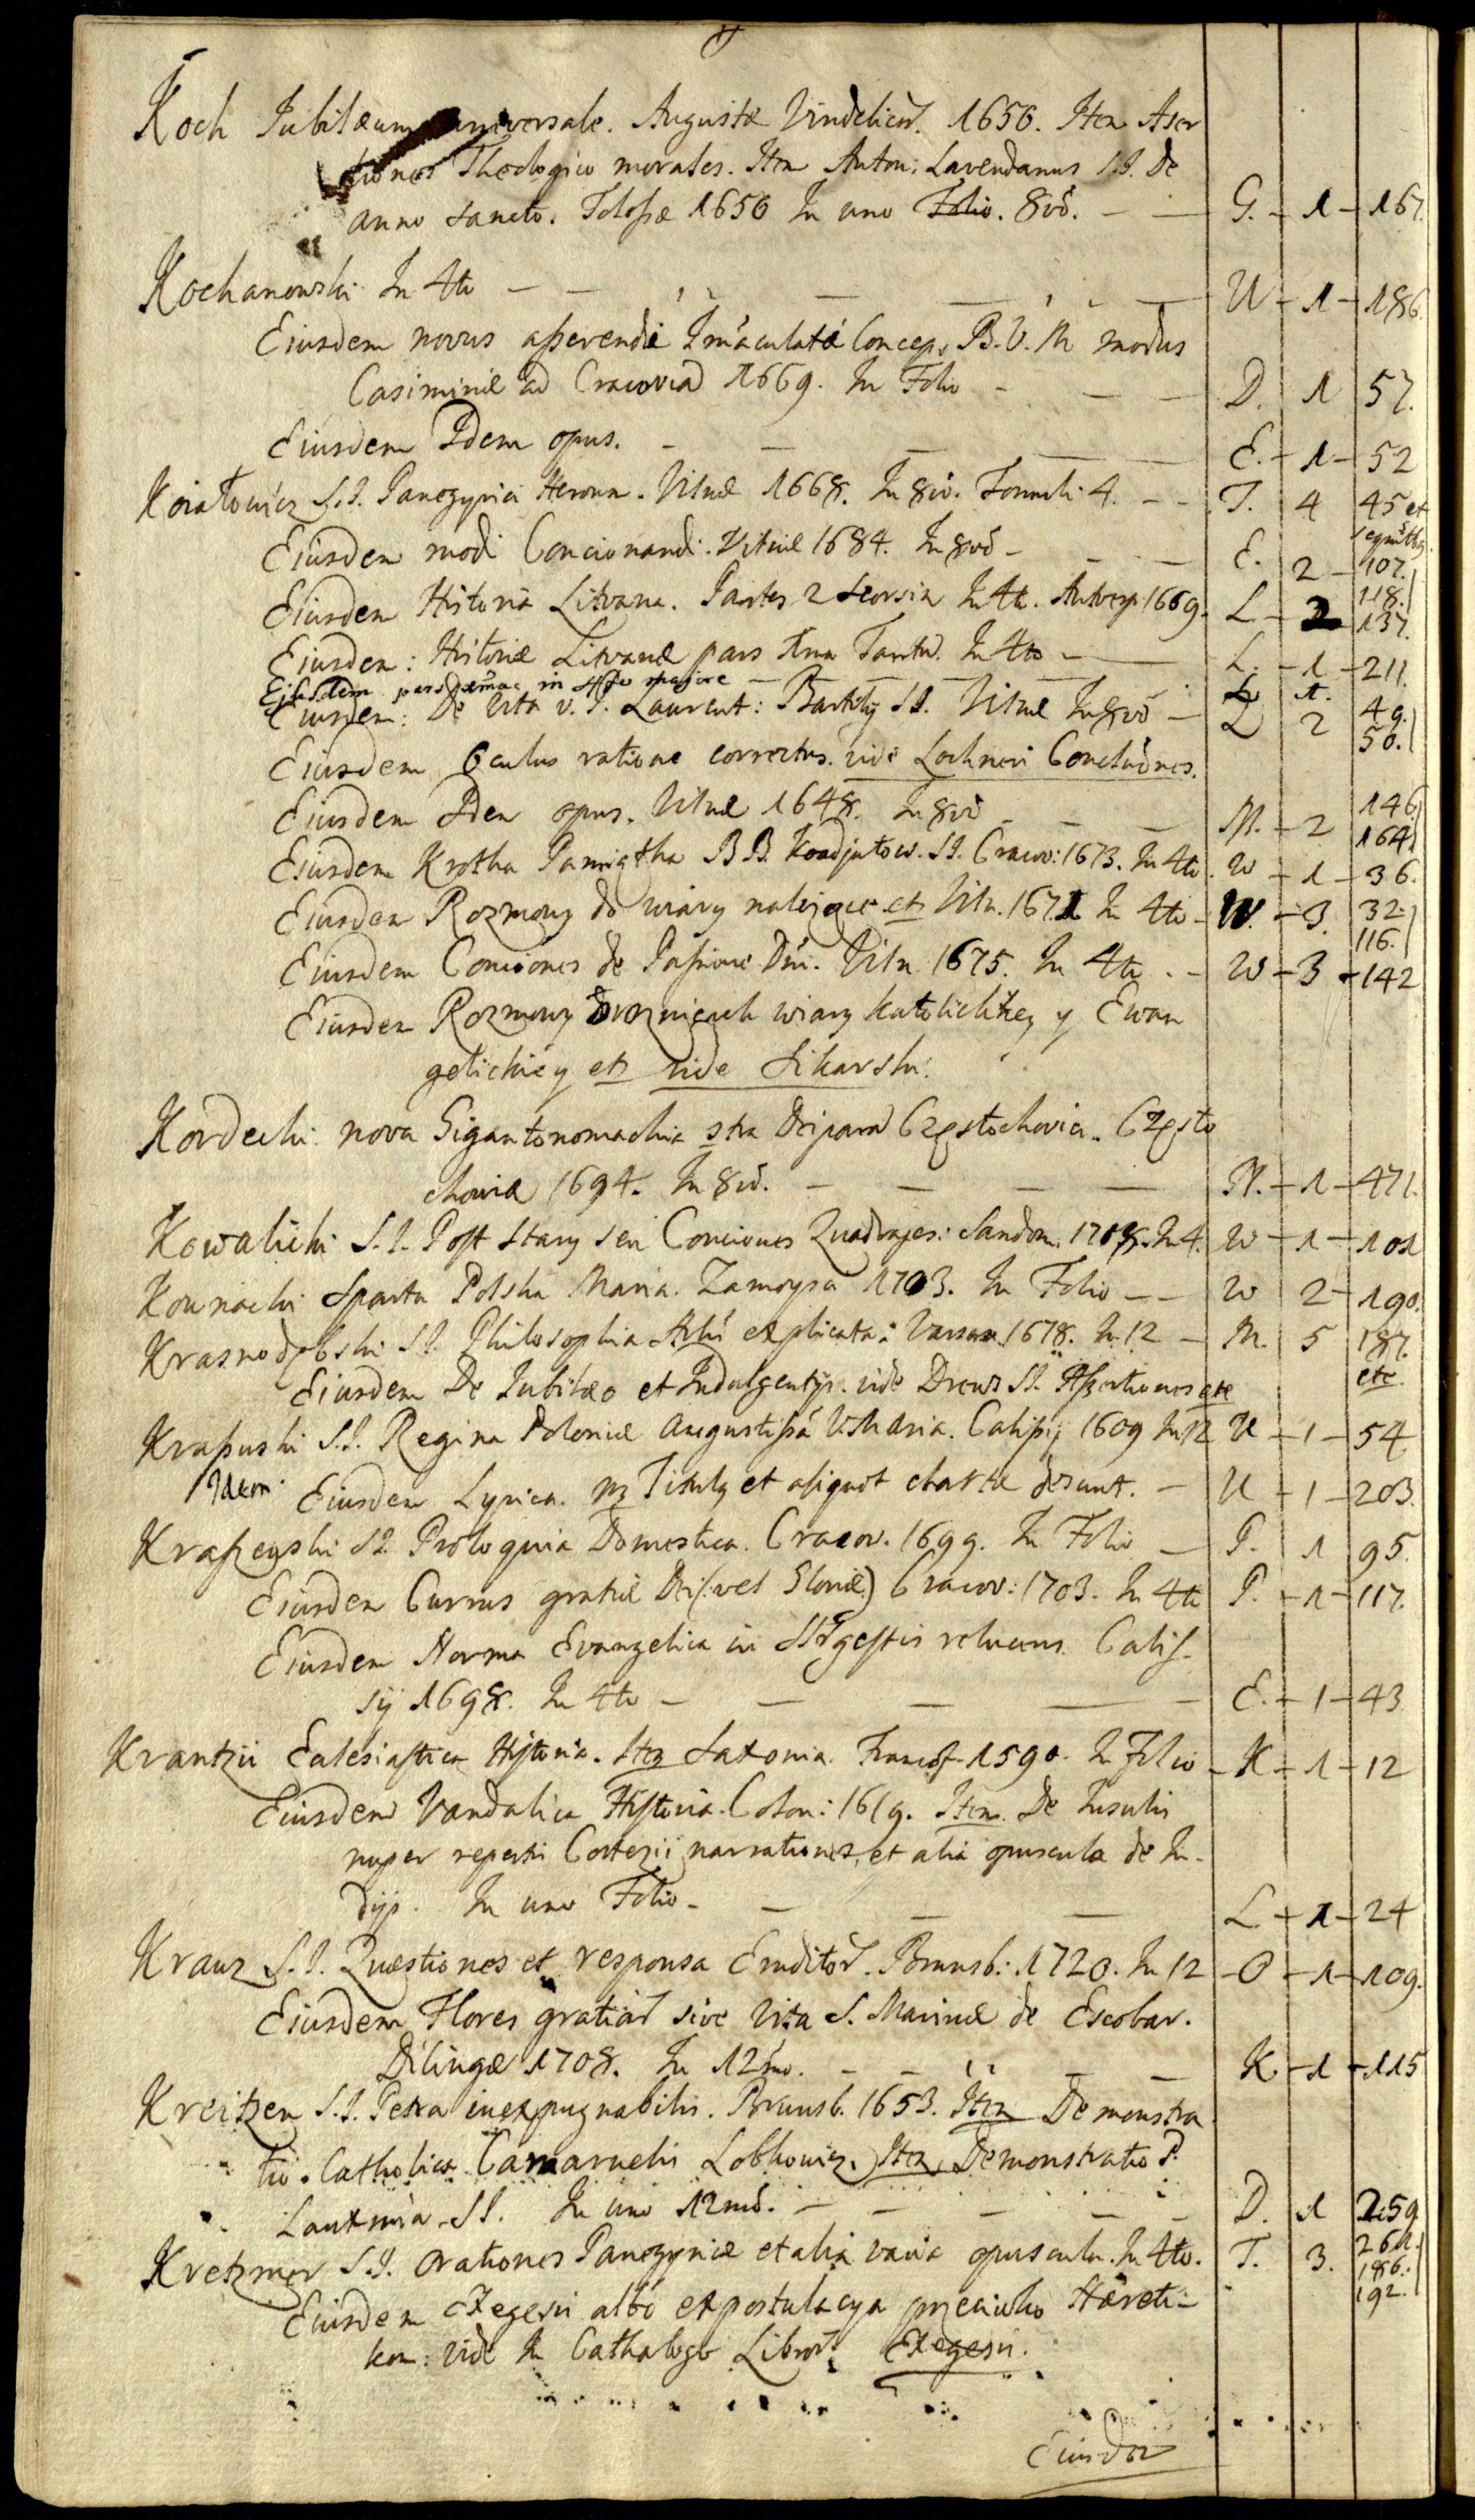 Koch Jubilæum universale. Augustæ Vindelicor. 1650. Item Aser
tiones Theologico morales. Item Anton: Lavendanus S.J. De
anno sancto. Tolosæ 1650 In uno Folio. 8vo. — — G. – 1 – 167.
Kochanowski In 4to — — — — — U – 1 – 186.
Eiusdem novus asserendæ Imaculatæ Concep. B.V.M modus
Casimiriæ ad Cracoviã 1669. In Folio — — — D. 1 57.
Eiusdem Idem opus. — — — — E. – 1 – 52
Koiałowicz S.J. Panegyrici Heroum. Vilnæ 1668. In 8vo. Tomuli 4. — — T. 4 45 et
Eiusdem modi Concionandi. Vilnæ 1684. In 8vo — — — E. 2 – 107. 118.
Eiusdem Historia Litvana. Partes 2 seorsim In 4to. Antverp 1669. L. – 2 – 137.
Eiusdem: Historiæ Litvanæ pars 1ma Tantũ. In 4to — — L. – 1 – 211.
Eiusdem pars 1ma in 4to majore — — — — L 1.
Eiusdem: De Vita V. P. Laurent: Bartilij SJ. Vilnæ In 8vo — L 2 49. 50.
Eiusdem Oculus ratione correctus. vide Lochneri Conclusiones.
Eiusdem Idem opus. Vilnæ 1648. In 8vo — — — M. – 2 146 164
Eiusdem Krotka Pamiątka BB. Koadjutow. SJ. Cracov: 1673. In 4to. W – 1 – 36.
Eiusdem Rozmowy do wiary należące et Viln. 1671 In 4to – W. – 3. 32. 116.
Eiusdem Conciones de Passione Dni. Viln 1675. In 4to. – W – 3 – 142
Eiusdem Rozmowy o roznicach wiary katolickiey y Ewan
gelickiey et vide Sikarski.
Kordecki nova Gigantomachia stra Deiparã Częstochovia. Często
choviæ 1694. In 8vo. — — — — N. – 1 – 471.
Kowalicki S.J. Post stary seu Conciones Quadrages: Sandom. 1708. In 4. W – 1 – 101
Kownacki Sparta Polska Maria. Zamoysci 1703. In Folio — — W 2 – 190.
Krasnodębski SJ. Philosophia Arlis explicata: Varsav 1678. In 12 — M. 5 187. etc.
Eiusdem De Jubilæo et Indulgentijs. vide Drews SJ. Assertiones etc
Krasuski S.J. Regina Poloniæ Augustissã V. Maria. Calissij 1609 In 12 U – 1 – 54
Idem Eiusdem Lyrica. Titulus et aliquot chartæ desunt. — U – 1 – 203.
Kraszewski SJ. Proloquia Domestica. Cracov. 1699. In Folio — P. 1 95.
Eiusdem Currus gratiæ Dei (: vel Gloriæ:) Cracov: 1703. In 4to P. – 1 – 117.
Eiusdem Norma Evangelica in SSrũ gestis relucens. Calis-
sij 1698. In 4to — — — — — E. – 1 – 43
Krantzii Eclesiastica Hystoria. Item Saxonia. Francof. 1590. In Folio – K – 1 – 12
Eiusdem Vandalica Hystoria. Colon: 1619. Item. De Insulis
nuper repertis Cortezii narrationes, et alia opuscula de In-
dijs. In uno Folio — — — — L – 1 – 24
Kraus S.J. Quæstiones et responsa Eruditor. Brunsb: 1720. In 12 – O – 1 – 109.
Eiusdem Flores gratiar sive Vita S. Marinæ de Escobar.
Dilingæ 1708. In 12mo. — — — — K – 1 – 115
Kreitzen S.J. Petra inexpugnabilis. Brunsb. 1653. Item Demonstra
tio Catholica Caramuelis Lobkowicz. Item Demonstratio P.
Lauxmin SJ. In uno 12mo. — — — — D. 1 259
Kretzmer S.J. Orationes Panegyricæ et alia varia opuscula. In 4to. T. 3. 261. 186. 192.
Eiusdem Exegesis albo expostulacya przeciwko Hæreti-
kom: vide In Cathalogo Libror. Exegesis.
Eiusdem